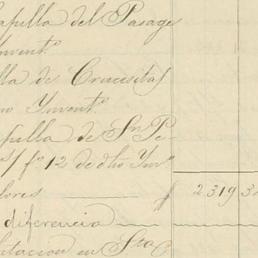 apilla del Pasage
nvent.º
lla de Crucesitas
no Ynvent.º
apilla de Sn. Pe-
s/ fº 12 de dho Ynvº
lores $ 2319 3
diferencia
bitacion en Sta